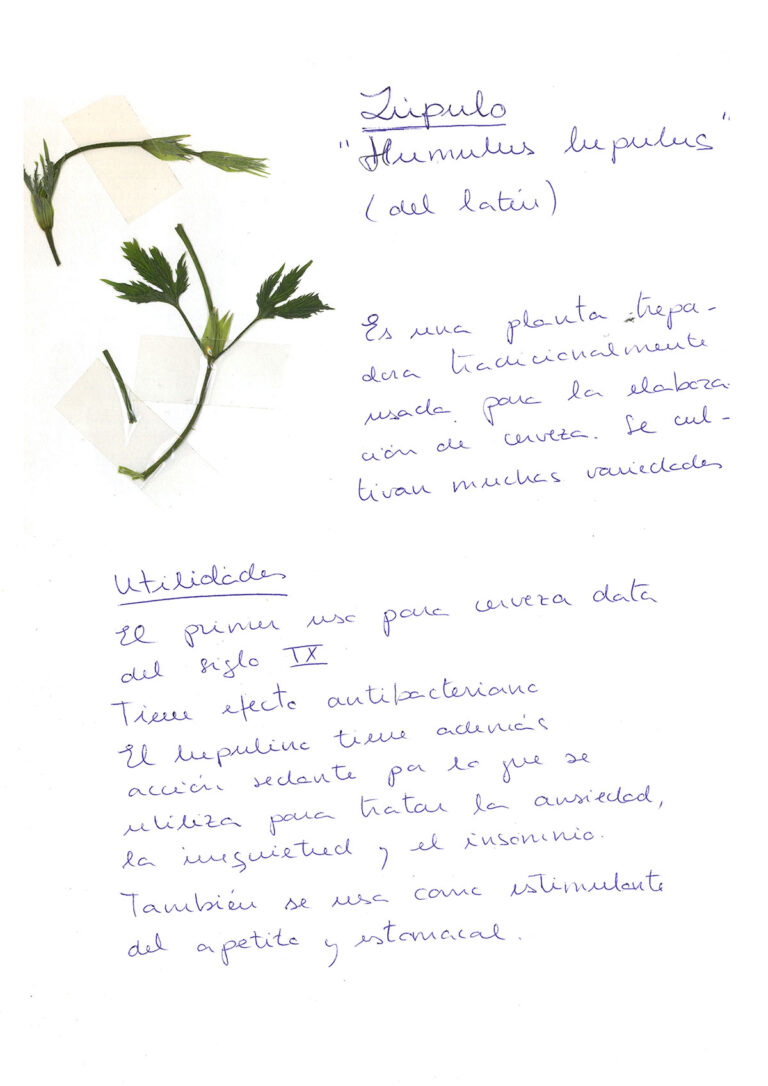 Lúpulo
"Humulus lupulus"
(del latín)
Es una planta trepa-
dora tradicionalmente
usada para la elabora-
ción de cerveza. Se cul-
tivan muchas variedades
Utilidades
El primer uso para cerveza data
del siglo IX
Tiene efecto antibacteriano
El lupulino tiene además
acción sedante por lo que se
utiliza para tratar la ansiedad,
la inquietud y el insomnio.
También se usa como estimulante
del apetito y estomacal.